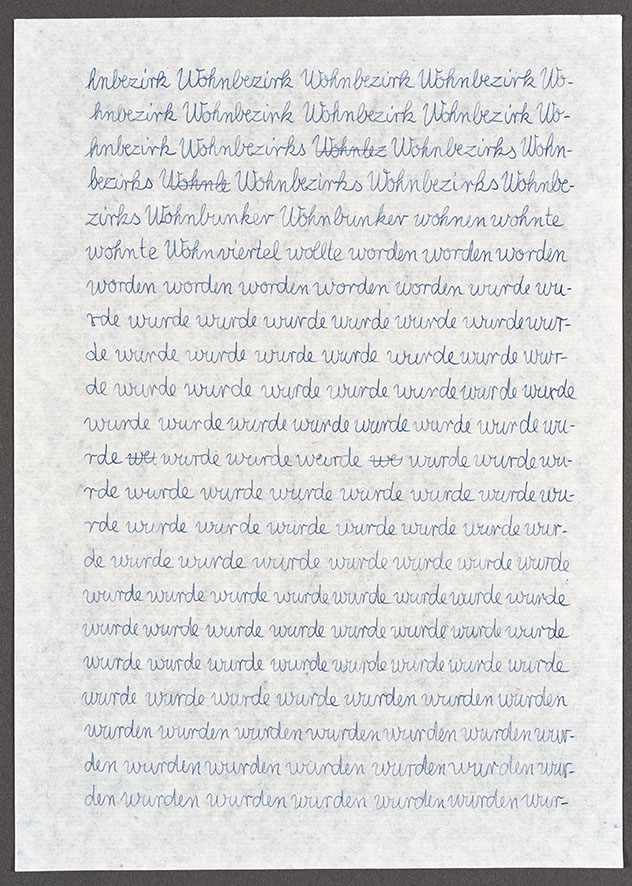 hnbezirk Wohnbezirk Wohnbezirk Wohnbezirk Wo-
hnbezirk Wohnbezirk Wohnbezirk Wohnbezirk Wo-
hnbezirk Wohnbezirks Wohnbez Wohnbezirks Wohn-
bezirks Wohnb Wohnbezirks Wohnbezirks Wohnbe-
zirks Wohnbunker Wohnbunker wohnen wohnte
wohnte Wohnviertel wollte worden worden worden
worden worden worden worden worden wurde wu-
rde wurde wurde wurde wurde wurde wurde wur-
de wurde wurde wurde wurde wurde wurde wur-
de wurde wurde wurde wurde wurde wurde wurde
wurde wurde wurde wurde wurde wurde wurde wu-
rde we wurde wurde wurde we wurde wurde wu-
rde wurde wurde wurde wurde wurde wurde wu-
rde wurde wurde wurde wurde wurde wurde wur-
de wurde wurde wurde wurde wurde wurde wurde
wurde wurde wurde wurde wurde wurde wurde wurde
wurde wurde wurde wurde wurde wurde wurde wurde
wurde wurde wurde wurde wurde wurde wurde wurde
wurde wurde wurde wurde wurden wurden wurden
wurden wurden wurden wurden wurden wurden wur-
den wurden wurden wurden wurden wurden wur-
den wurden wurden wurden wurden wurden wur-